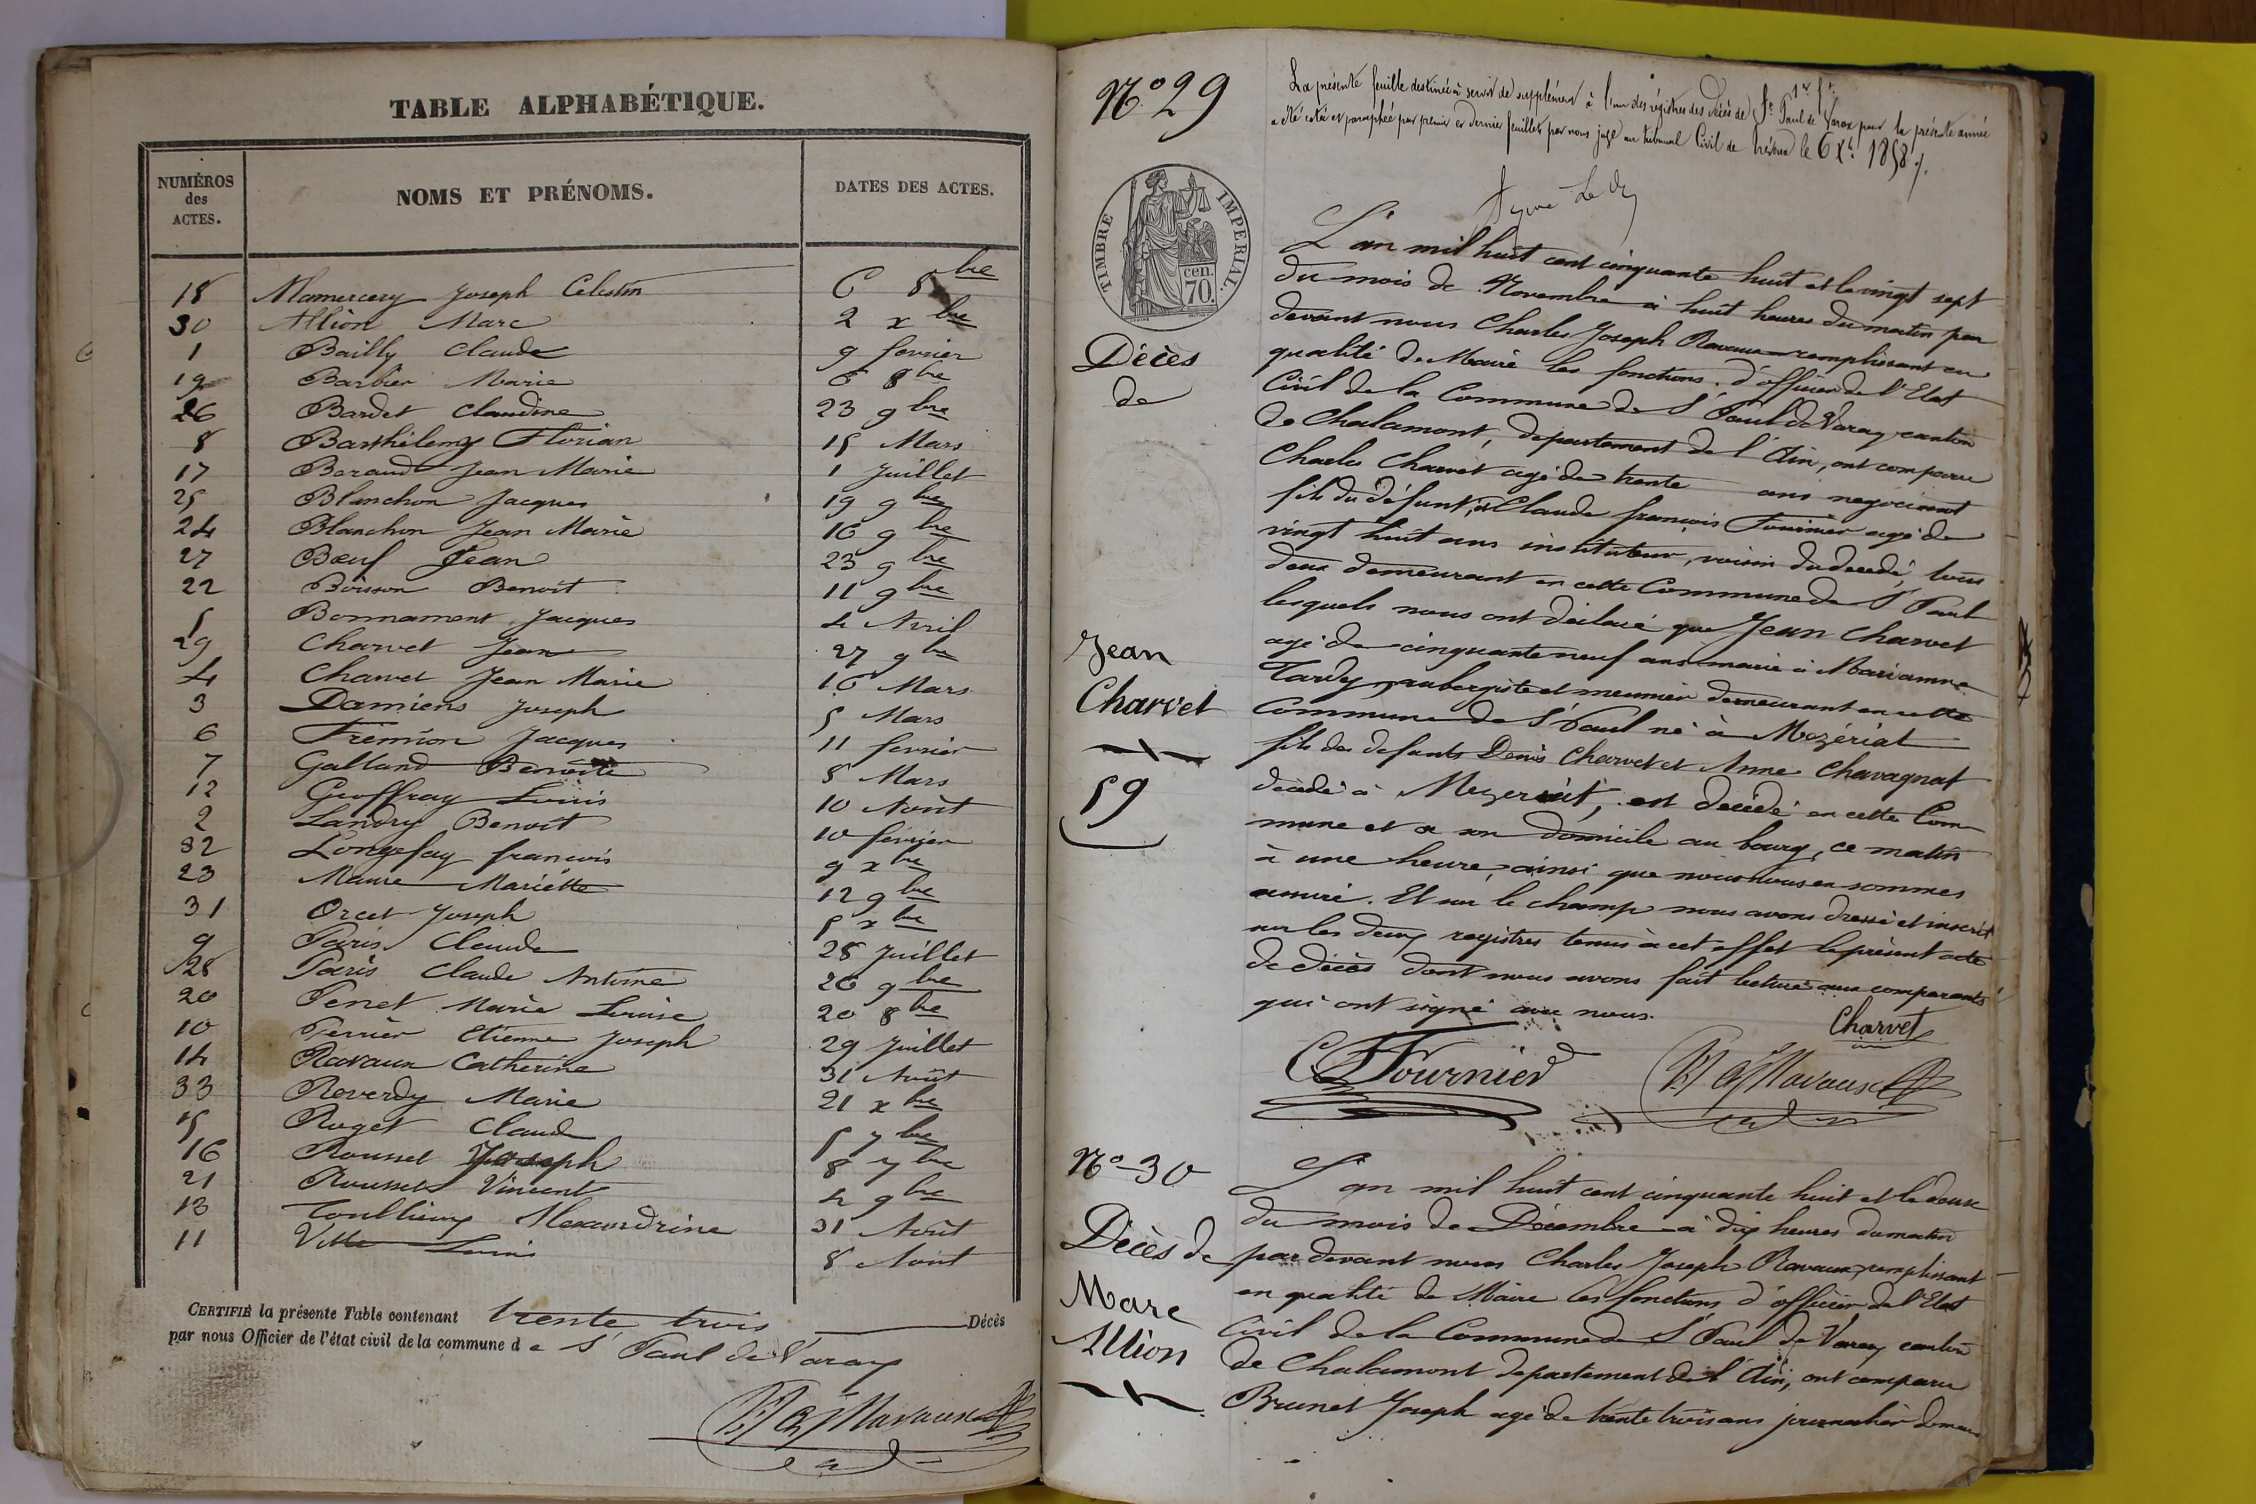 TABLE ALPHABÉTIQUE.
NUMÉROS des ACTES.
NOMS ET PRÉNOMS.
DATES DES ACTES.
18 Mamercery Joseph Celestin 6 8bre
30 Allion Marc 2 xbre
1 Bailly Claude 9 fevrier
19 Barbier Marie 6 8bre
26 Bardet Claudine 23 9bre
8 Barthélemy Florian 15 Mars
17 Beraud Jean Marie 1 Juillet
25 Blanchon Jacques 19 9bre
24 Blanchon Jean Marie 16 9bre
27 Bœuf Jean 23 9bre
22 Boisson Benoit 11 9bre
5 Bonnament Jacques 4 Avril
29 Charvet Jean 27 9bre
4 Charvet Jean Marie 16 Mars
3 Damiens Joseph 5 Mars
6 Frémion Jacques 11 fevrier
7 Galland Benoite 8 Mars
12 Geoffray Louis 10 Août
2 Landry Benoit 10 fevrier
32 Longefay francois 9 xbre
23 Maure Mariette 12 9bre
31 Orcet Joseph 5 xbre
9 Paris Claude 28 Juillet
28 Paris Claude Antoine 26 9bre
20 Penet Marie Louise 20 8bre
10 Perrier Etienne Joseph 29 Juillet
14 Ravaux Catherine 31 Août
33 Reverdy Marie 21 xbre
15 Roget Claude 5 7bre
16 Rousset Joseph 8 7bre
21 Rousset Vincent 2 9bre
13 Toubliery Alexandrine 31 Août
11 Vitte Louis 8 Août
CERTIFIÉ la présente Table contenant trente trois Décès
par nous Officier de l'état civil de la commune de St Paul de Varax
Ravaux
No 29
1er ft
La présente feuille destinée à servir de supplément à l'un des régistres des Décès de St Paul de Varax pour la présente année
a été cotée et paraphée par premier et dernier feuillet par nous juge au tribunal Civil de Trévoux le 6 Xbre 1858.
TIMBRE IMPERIAL.
70 cen.
Décès
de
Jean
Charvet
59
L'an mil huit cent cinquante huit et le vingt sept
du mois de Novembre à huit heures du matin par
devant nous Charles Joseph Ravaux remplissant en
qualité de Maire les fonctions d'officier de l'Etat
Civil de la Commune de St Paul de Varax canton
de Chalamont, departement de l'Ain, ont comparu
Charles Charvet agé de trente ans negociant
fils du défunt, et Claude françois Fournier agé de
vingt huit ans instituteur, voisin du décédé, tous
deux demeurant en cette Commune de St Paul
lesquels nous ont déclaré que Jean Charvet
agé de cinquante neuf ans marié à Marianne
Tardy, aubergiste et meunier demeurant en cette
Commune de St Paul né à Mezériat
fils des defunts Denis Charvet et Anne Chavagnat
décédé à Mezeriat, est décédé en cette Com-
mune et a son domicile au bourg, ce matin
à une heure, ainsi que nous nous en sommes
assuré. Et sur le champ nous avons dressé et inscrit
sur les deux registres tenus à cet effet le présent acte
de décès dont nous avons fait lecture aux comparants
qui ont signé avec nous.
Charvet
C F Fournier
Ravaux
No 30
Décès de
Marc
Allion
L'an mil huit cent cinquante huit et le deux
du mois de Décembre à dix heures du matin
par devant nous Charles Joseph Ravaux remplissant
en qualité de Maire les fonctions d'officier de l'Etat
Civil de la Commune de St Paul de Varax canton
de Chalamont departement de l'Ain, ont comparu
Brunet Joseph agé de trente trois ans journalier demeu